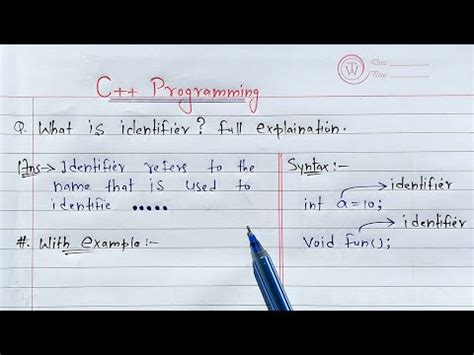 Date
Page
C++ Programming
Q. What is identifier? full explaination.
Ans→ Identifier refers to the
name that is used to
identifie .....
#. With example:-
Syntax:-
identifier
int a=10;
identifier
Void fun();